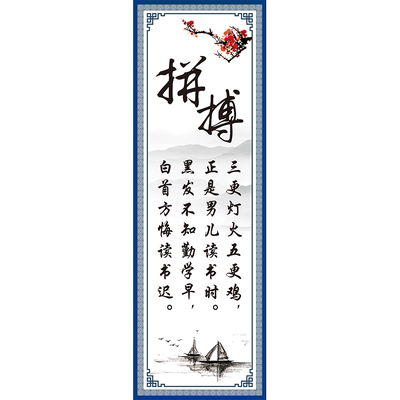 拼搏
三更灯火五更鸡，
正是男儿读书时。
黑发不知勤学早，
白首方悔读书迟。